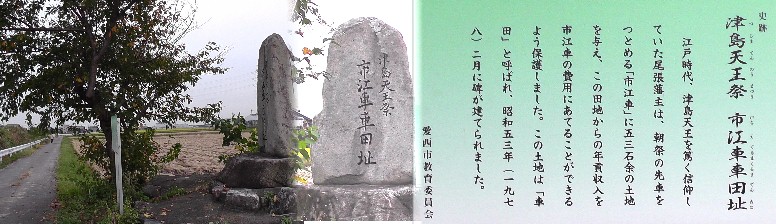 津島天王祭
市江車車田址
史跡
津島天王祭 市江車車田址
つしまてんのうまつり いちえぐるまくるまでんあと
江戸時代、津島天王を篤く信仰し
ていた尾張藩主は、朝祭の先車を
つとめる「市江車」に五三石余の土地
を与え、この田地からの年貢収入を
市江車の費用にあてることができる
よう保護しました。この土地は「車
田」と呼ばれ、昭和五三年(一九七
八)二月に碑が建てられました。
愛西市教育委員会